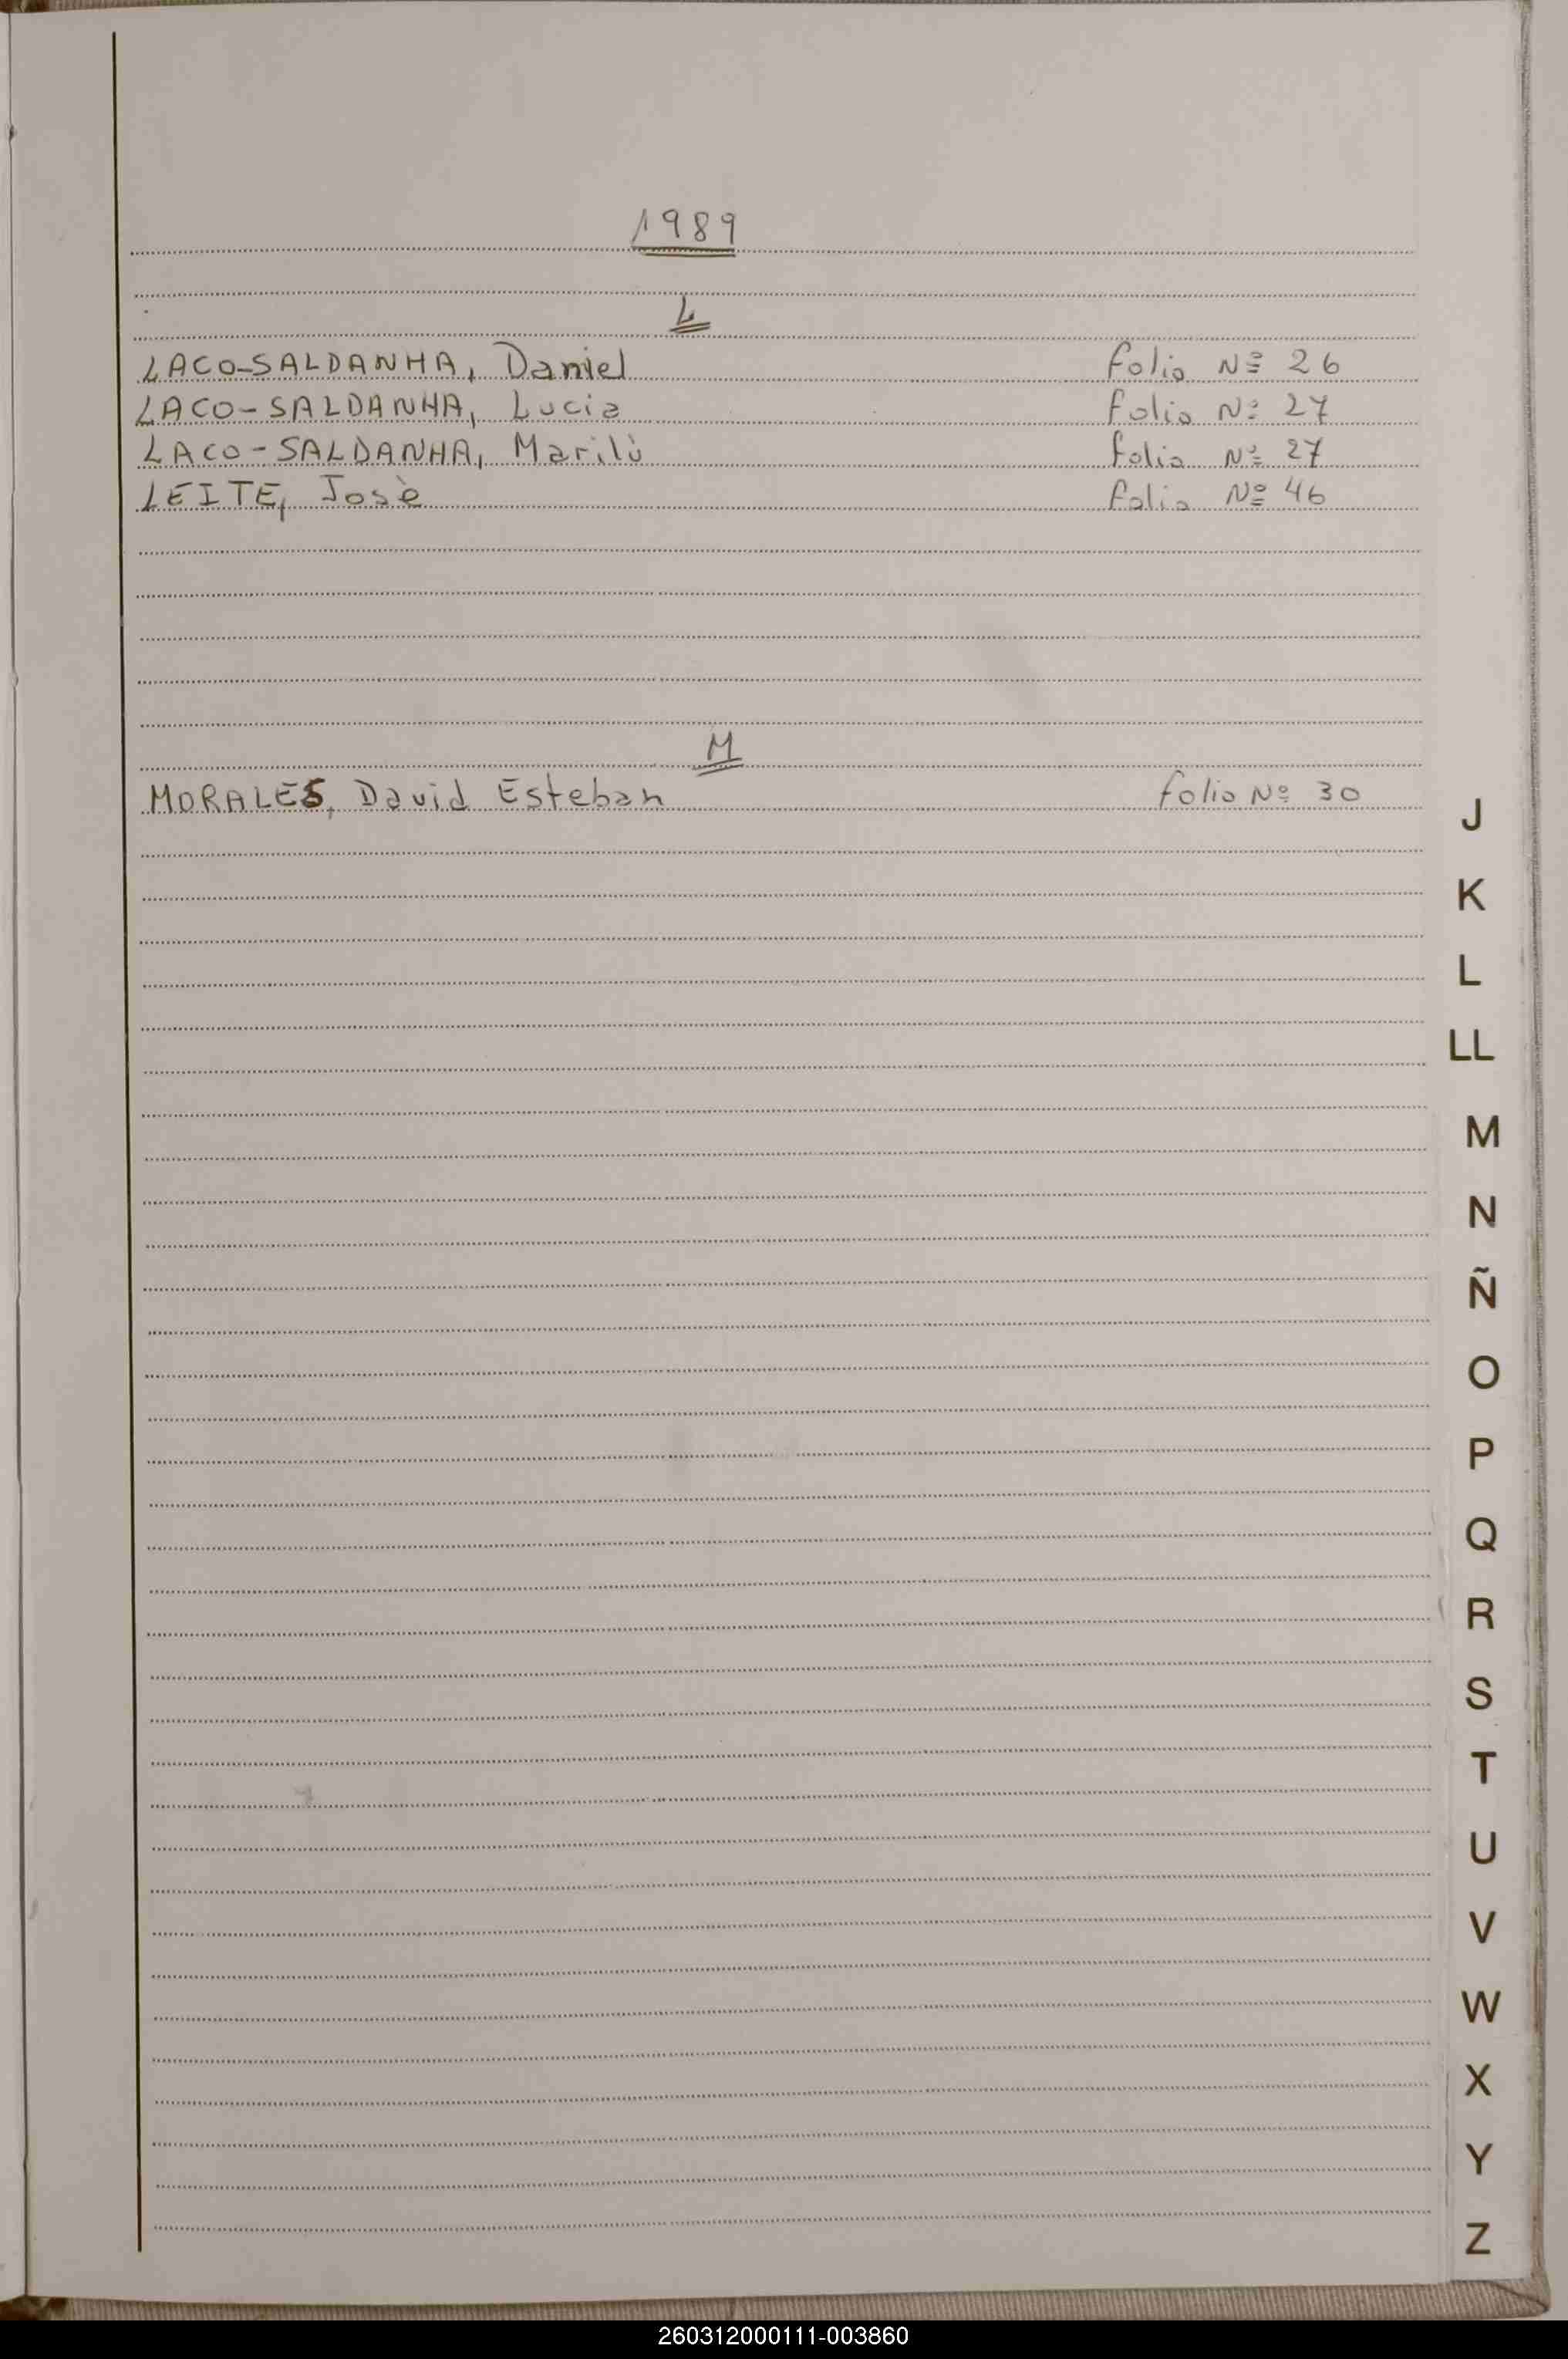 1989
L
LACO-SALDANHA, Daniel folio Nº 26
LACO-SALDANHA, Lucia folio Nº 27
LACO-SALDANHA, Marilù folio Nº 27
LEITE, Josè folio Nº 46
M
MORALES, David Esteban folio Nº 30
J
K
L
LL
M
N
Ñ
O
P
Q
R
S
T
U
V
W
X
Y
Z
260312000111-003860